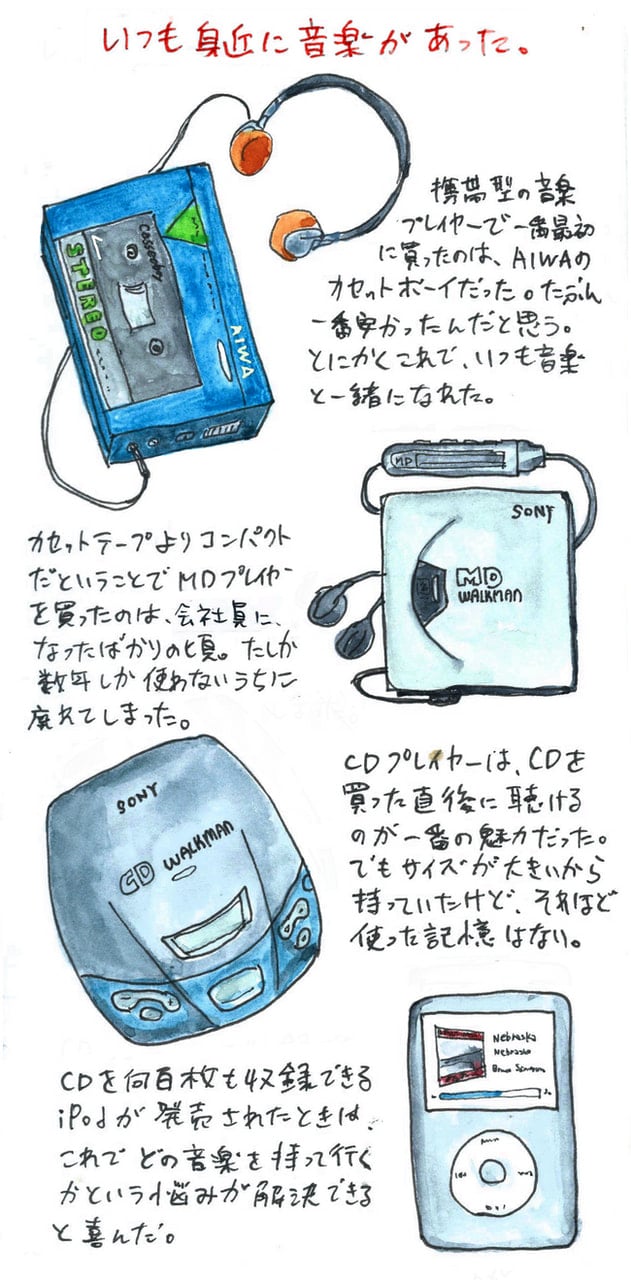 いつも身近に音楽があった。
携帯型の音楽
プレイヤーで一番最初
に買ったのは、AIWAの
カセットボーイだった。たぶん
一番安かったんだと思う。
とにかくこれで、いつも音楽
と一緒になれた。
CassetBoy
STEREO
AIWA
MD
SONY
MD
WALKMAN
カセットテープよりコンパクト
だということでMDプレイヤー
を買ったのは、会社員に、
なったばかりの頃。たしか
数年しか使わないうちに
廃れてしまった。
SONY
CD WALKMAN
CDプレイヤーは、CDを
買った直後に聴ける
のが一番の魅力だった。
でもサイズが大きいから
持っていたけど、それほど
使った記憶はない。
CDを何百枚も収録できる
iPodが発売されたときは、
これでどの音楽を持って行く
かという悩みが解決できる
と喜んだ。
Nebraska
Nebraska